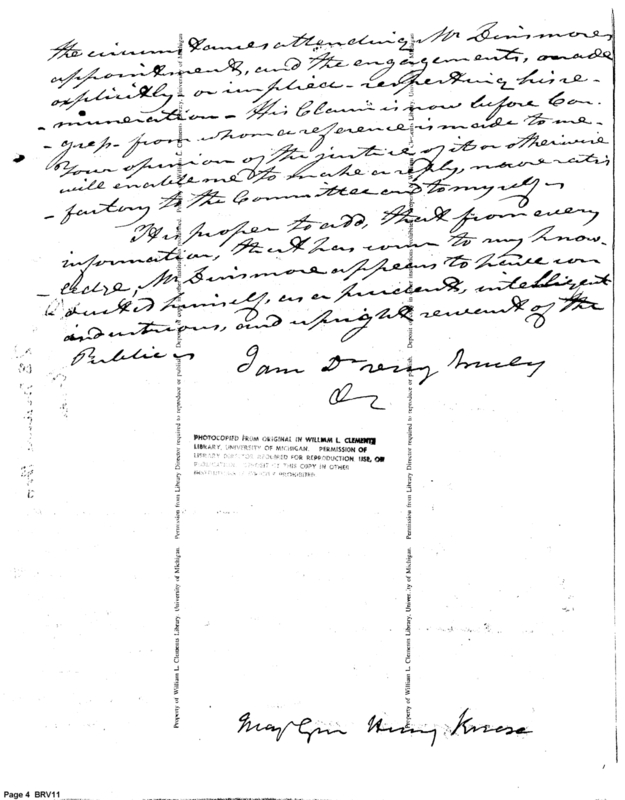 the circumstances attending Mr Dinsmores
appointment, and the engagements, made
explicitly or implied - respecting his re-
- muneration - His Claim is now before Con.
- gress - from whom a reference is made to me -
Your opinion of the justice of it or otherwise
will enable me to make a reply, more satis
- factory to the Committee and to myself -
It is proper to add, that from every
information, that has come to my know-
- ledge, Mr Dinsmore appears to have con
ducted himself, as a prudent, intelligent
industrious, and upright servant of the
Public
I am Dr very truly
PHOTOCOPIED FROM ORIGINAL IN WILLIAM L. CLEMENTS
LIBRARY, UNIVERSITY OF MICHIGAN. PERMISSION OF
LIBRARY DIRECTOR REQUIRED FOR REPRODUCTION USE, OR
PUBLICATION. DEPOSIT OF THIS COPY IN OTHER
Property of William L. Clements Library, University of Michigan. Permission from Library Director required to reproduce or publish.
Property of William L. Clements Library, University of Michigan. Permission from Library Director required to reproduce or publish.
Maj Gen Henry Knox
Page 4 BRV11